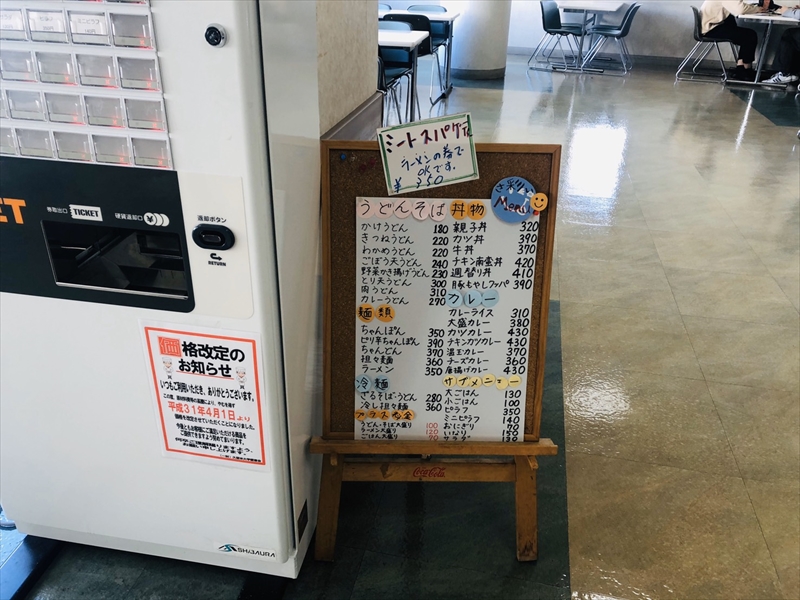 TICKET
券取出口 TICKET
硬貨返却口
返却ボタン
RETURN
価格改定の
お知らせ
いつもご利用いただき、ありがとうございます。
平成31年4月1日より
価格を改定させていただくことになりました。
SHIBAURA
ミートスパゲ
ラーメンの券で
OKです。
¥350
Menu
うどんそば
かけうどん 180
きつねうどん 220
わかめうどん 220
ごぼう天うどん 240
野菜かき揚げうどん 230
とり天うどん 300
肉うどん 310
カレーうどん 270
麺類
ちゃんぽん 350
ピリ辛ちゃんぽん 390
ちゃんどん 370
担々麺 360
ラーメン 350
冷麺
ざるそば・うどん 280
冷し担々麺 360
プラス料金
うどん・そば大盛り 100
ラーメン大盛り 120
ごはん大盛り 70
丼物
親子丼 320
カツ丼 390
牛丼 370
チキン南蛮丼 420
週替り丼 410
豚もやしフッパ 390
カレー
カレーライス 310
大盛カレー 380
カツカレー 430
チキンカツカレー 430
温玉カレー 370
チーズカレー 360
唐揚げカレー 430
サブメニュー
大ごはん 130
小ごはん 100
ピラフ 350
ミニピラフ 140
おにぎり 70
いなり 150
サラダ 130
Coca-Cola